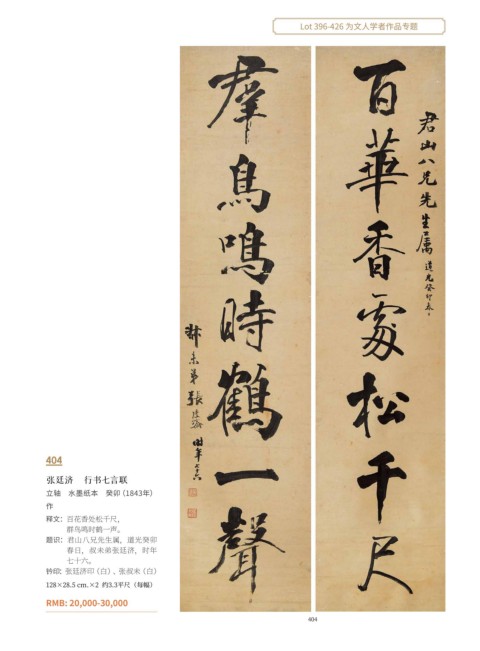 Lot 396-426 为文人学者作品专题
百華香處松千尺
君山八兄先生属 道光癸卯春日
羣鳥鳴時鶴一聲
叔未弟張廷濟 時年七十六
404
张廷济 行书七言联
立轴 水墨纸本 癸卯（1843年）
作
释文：百花香处松千尺，
群鸟鸣时鹤一声。
题识：君山八兄先生属，道光癸卯
春日，叔未弟张廷济，时年
七十六。
钤印：张廷济印（白）、张叔未（白）
128×28.5 cm.×2 约3.3平尺（每幅）
RMB: 20,000-30,000
404